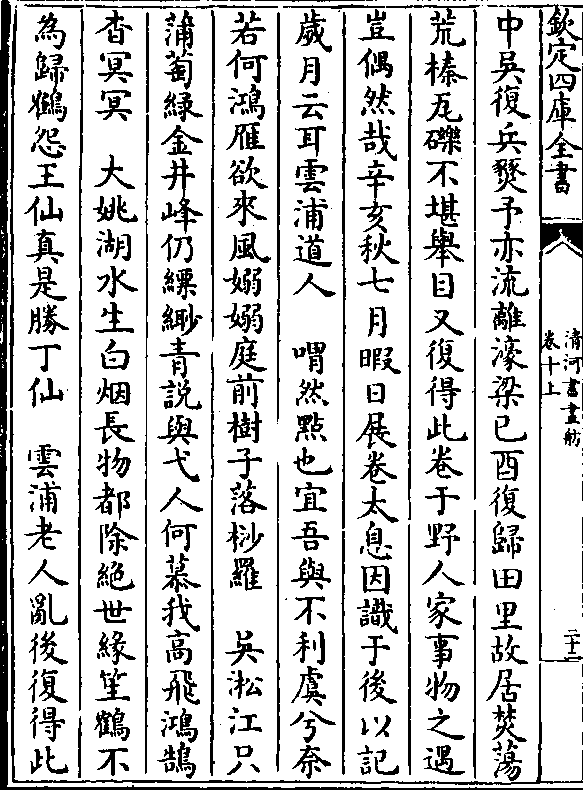 欽定四庫全書
清河書畫舫
卷十上
二十二
中吳復兵燹予亦流離濠梁己酉復歸田里故居焚蕩
荒榛瓦礫不堪舉目又復得此卷于野人家事物之遇
豈偶然哉辛亥秋七月暇日展卷太息因識于後以記
歲月云耳雲浦道人　喟然㸃也宜吾與不利虞兮奈
若何鴻雁欲來風嫋嫋庭前樹子落桫羅　吳淞江只
蒲萄緑金井峰仍縹緲青説與弋人何慕我高飛鴻鵠
杳冥冥　大姚湖水生白烟長物都除絶世緣笙鶴不
為歸鶴怨王仙真是勝丁仙　雲浦老人亂後復得此